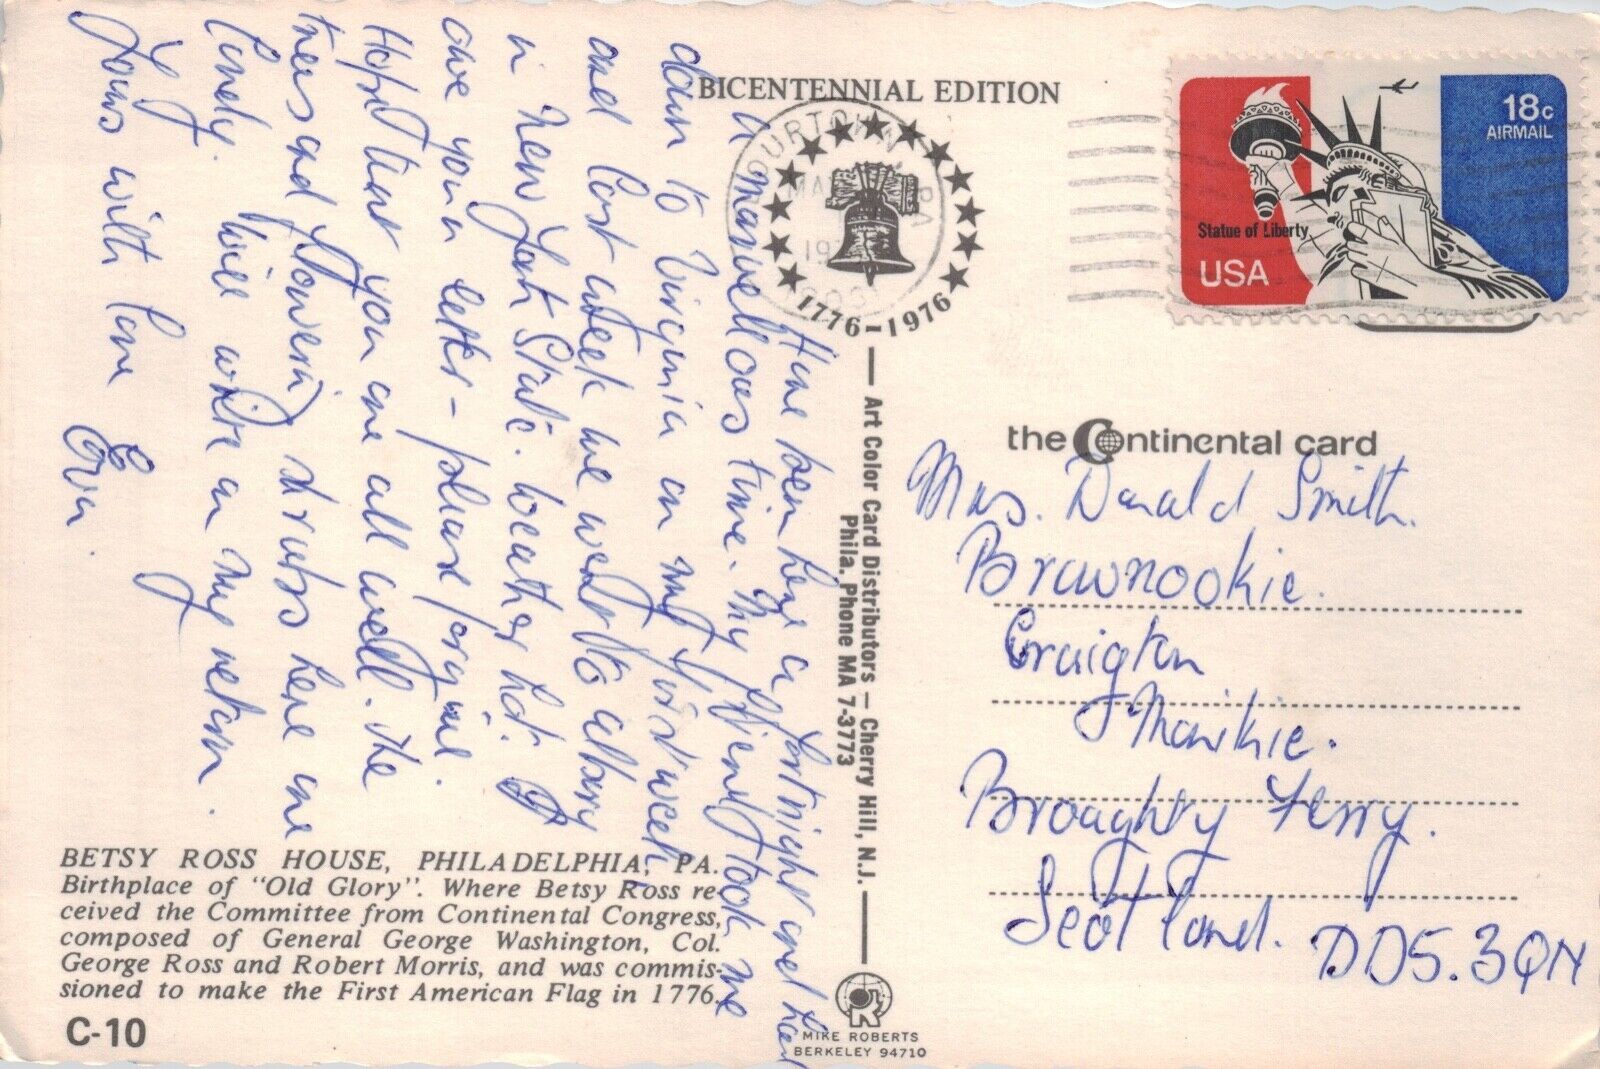 BICENTENNIAL EDITION
1776-1976
18c
AIRMAIL
Statue of Liberty
USA
the Continental card
Have been here a fortnight and had
a marvellous time. My friend took me
down to Virginia on my first week
and last week we went to albany
in New York State. weather hot.
owe you a letter - please forgive.
Hope that you are all well. The
trees and flowering shrubs here are
lovely. Will write on my return.
Yours with love
Eva.
Mrs. Donald Smith.
Brawnookie.
Craigton
Monikie.
Broughty Ferry.
Scotland. DD5.3QN
Art Color Card Distributors — Cherry Hill, N.J.
Phila. Phone MA 7-3773
BETSY ROSS HOUSE, PHILADELPHIA, PA.
Birthplace of "Old Glory". Where Betsy Ross re-
ceived the Committee from Continental Congress,
composed of General George Washington, Col.
George Ross and Robert Morris, and was commis-
sioned to make the First American Flag in 1776.
C-10
MIKE ROBERTS
BERKELEY 94710